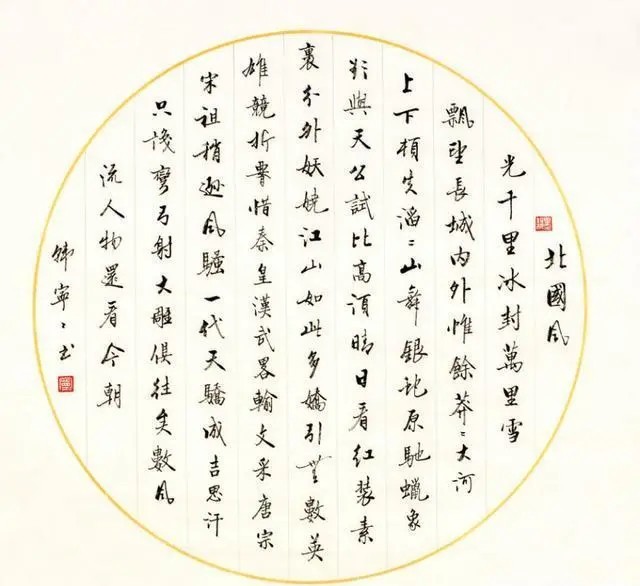 北國風
光千里冰封萬里雪
飄望長城内外惟餘莽〻大河
上下頓失滔〻山舞銀蛇原馳蠟象
欲與天公試比高須晴日看红装素
裹分外妖娆江山如此多嬌引無數英
雄競折腰惜秦皇漢武畧輸文采唐宗
宋祖稍遜風騷一代天驕成吉思汗
只識彎弓射大雕俱往矣數風
流人物還看今朝
韩寧〻书